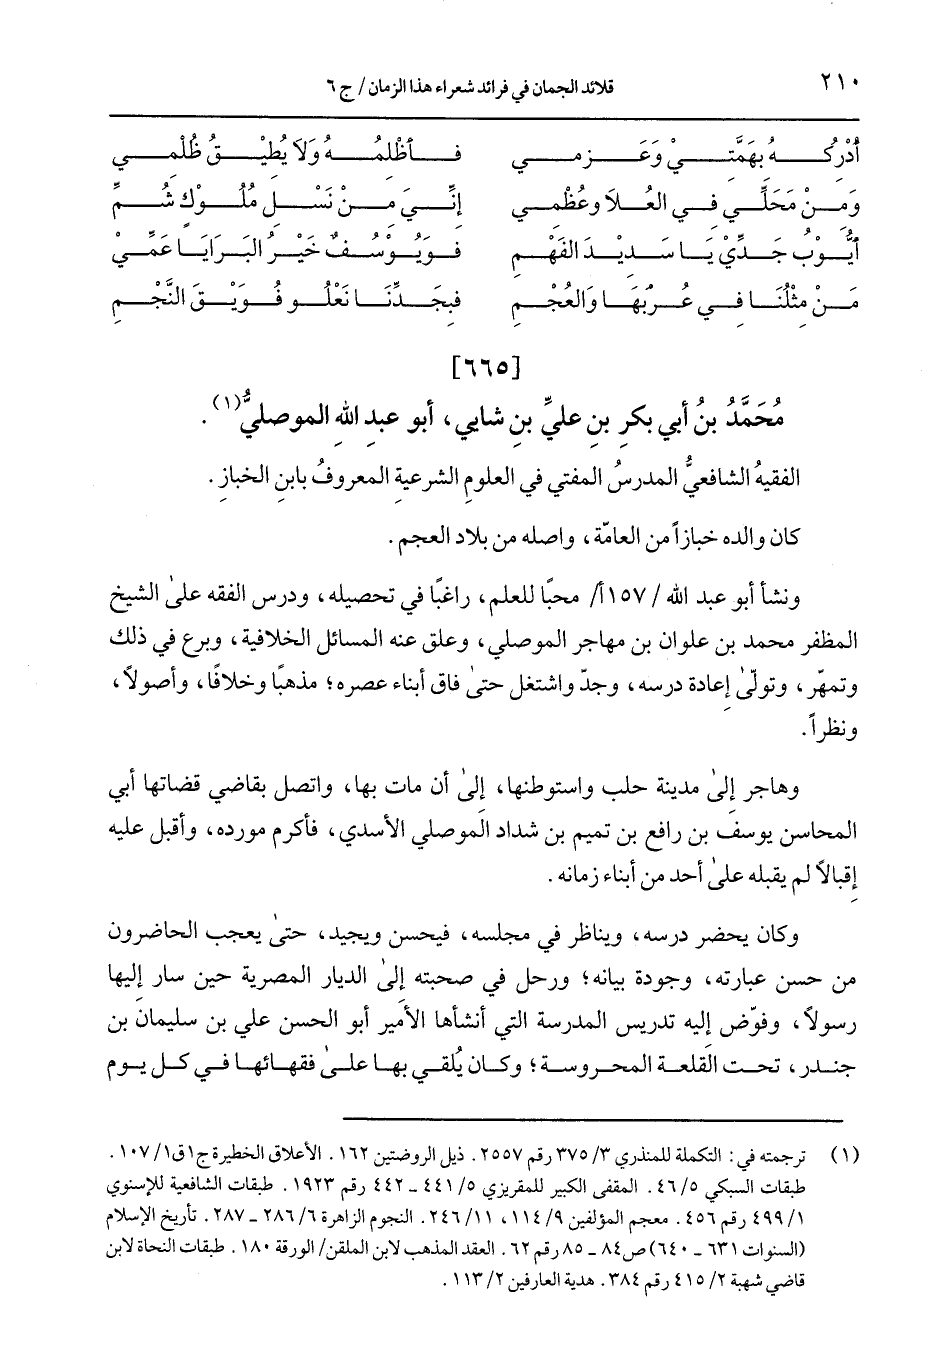 ٢١٠ قلائد الجمان في فرائد شعراء هذا الزمان / ج ٦
أُدْرِكُـــهُ بِهِمَّتِـــيْ وَعَـــزمـــي فـــأظْلِمُـــهُ وَلاَ يُطِيْـــقُ ظُلْمـــي
وَمِـــنْ مَحَلِّـــي فـــي العُـــلاَ وعُظْمِـــي إنِّـــي مِـــنْ نَسْـــلِ مُلُـــوْكٍ شُـــمِّ
أيُّـــوْبُ جَـــدِّيْ يَـــا سَـــدِيـــدَ الفَهْـــمِ فَـــوَيُـــوْسُـــفٌ خَيْـــرُ البَـــرَايَـــا عَمِّـــيْ
مَـــنْ مِثْلُنَـــا فِـــي عُـــرْبِهَـــا وَالعُجْـــمِ فبِجَـــدِّنَـــا نَعْلُـــو فُـــوَيْـــقَ النَّجْـــمِ
[٦٦٥]
مُحَمَّدُ بنُ أبي بكرِ بنِ عليِّ بنِ شايي، أبو عبدِ اللهِ الموصليُّ(١).
الفقيهُ الشافعيُّ المدرسُ المفتي في العلومِ الشرعيةِ المعروفُ بابنِ الخبازِ.
كان والده خبازاً من العامّة، واصله من بلاد العجم.
ونشأ أبو عبد الله /١٥٧أ/ محبًا للعلم، راغبًا في تحصيله، ودرس الفقه علىٰ الشيخ
المظفر محمد بن علوان بن مهاجر الموصلي، وعلق عنه المسائل الخلافية، وبرع في ذلك
وتمهّر، وتولّىٰ إعادة درسه، وجدّ واشتغل حتىٰ فاق أبناء عصره؛ مذهبًا وخلافًا، وأصولاً،
ونظراً.
وهاجر إلىٰ مدينة حلب واستوطنها، إلىٰ أن مات بها، واتصل بقاضي قضاتها أبي
المحاسن يوسف بن رافع بن تميم بن شداد الموصلي الأسدي، فأكرم مورده، وأقبل عليه
إقبالاً لم يقبله علىٰ أحد من أبناء زمانه.
وكان يحضر درسه، ويناظر في مجلسه، فيحسن ويجيد، حتىٰ يعجب الحاضرون
من حسن عبارته، وجودة بيانه؛ ورحل في صحبته إلىٰ الديار المصرية حين سار إليها
رسولاً، وفوّض إليه تدريس المدرسة التي أنشأها الأمير أبو الحسن علي بن سليمان بن
جندر، تحت القلعة المحروسة؛ وكان يُلقي بها علىٰ فقهائها في كل يوم
(١) ترجمته في: التكملة للمنذري ٣/ ٣٧٥ رقم ٢٥٥٧. ذيل الروضتين ١٦٢. الأعلاق الخطيرة ج١ق١/ ١٠٧.
طبقات السبكي ٥/ ٤٦. المقفى الكبير للمقريزي ٥/ ٤٤١ ـ ٤٤٢ رقم ١٩٢٣. طبقات الشافعية للإسنوي
١/ ٤٩٩ رقم ٤٥٦. معجم المؤلفين ٩/ ١١٤، ١١/ ٢٤٦. النجوم الزاهرة ٦/ ٢٨٦ ـ ٢٨٧. تأريخ الإسلام
(السنوات ٦٣١ ـ ٦٤٠) ص٨٤ ـ ٨٥ رقم ٦٢. العقد المذهب لابن الملقن/ الورقة ١٨٠. طبقات النحاة لابن
قاضي شهبة ٢/ ٤١٥ رقم ٣٨٤. هدية العارفين ٢/ ١١٣.